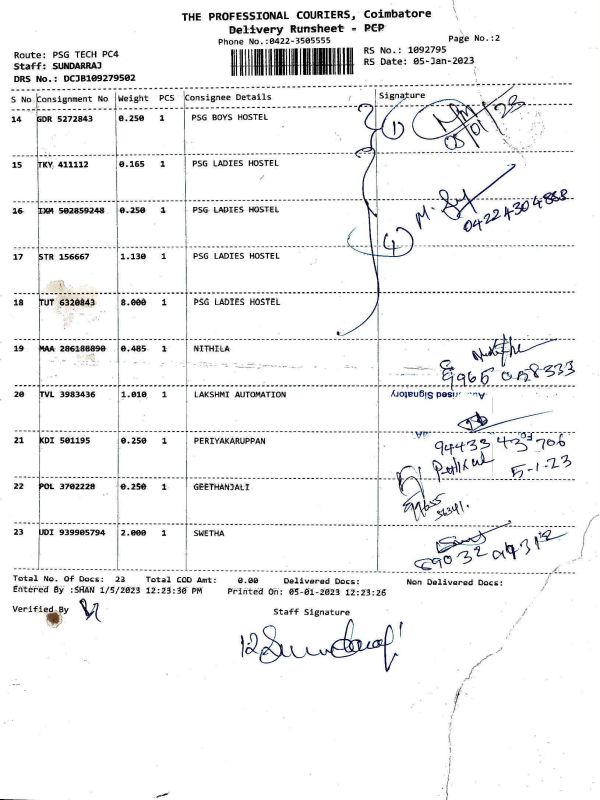 THE PROFESSIONAL COURIERS, Coimbatore
Delivery Runsheet - PCP
Phone No.:0422-3505555
Page No.:2
Route: PSG TECH PC4
RS No.: 1092795
Staff: SUNDARRAJ
RS Date: 05-Jan-2023
DRS No.: DCJB109279502
S No Consignment No Weight PCS Consignee Details Signature
14 GDR 5272843 0.250 1 PSG BOYS HOSTEL
1
05/01/23
15 TKY 411112 0.165 1 PSG LADIES HOSTEL
16 IXM 502859248 0.250 1 PSG LADIES HOSTEL
04224304888
4
17 STR 156667 1.130 1 PSG LADIES HOSTEL
18 TUT 6320843 8.000 1 PSG LADIES HOSTEL
19 MAA 286188090 0.485 1 NITHILA
20 TVL 3983436 1.010 1 LAKSHMI AUTOMATION
Signatory
21 KDI 501195 0.250 1 PERIYAKARUPPAN
5-1-23
22 POL 3702228 0.250 1 GEETHANJALI
23 UDI 939905794 2.000 1 SWETHA
Total No. Of Docs: 23 Total COD Amt: 0.00 Delivered Docs: Non Delivered Docs:
Entered By :SHAN 1/5/2023 12:23:30 PM Printed On: 05-01-2023 12:23:26
Verified By
Staff Signature